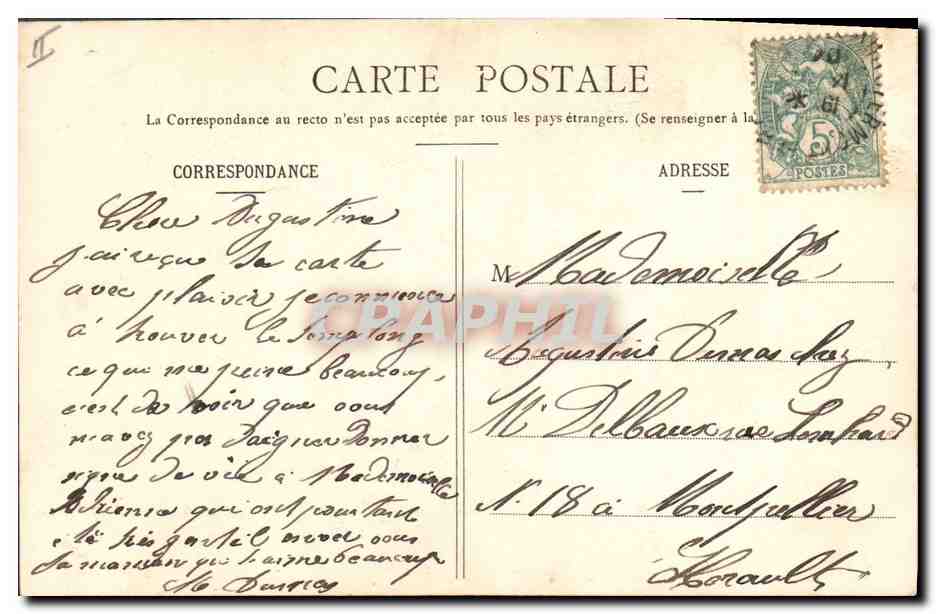 II
CARTE POSTALE
La Correspondance au recto n'est pas acceptée par tous les pays étrangers. (Se renseigner à la
CORRESPONDANCE
Chère Augustine
j'ai reçue ta carte
avec plaisir je commence
à trouver le temp long
ce qui me peine beaucoup,
c'est de voir que vous
n'avez pas daigner donner
signe de vie à Mademoiselle
Adrienne qui ont pourtant
été très gentil envers vous
Ta maman qui t'aime beaucoup
ADRESSE
5c
POSTES
M Mademoiselle
Augustine Dumas chez
Mr Delbaux rue Lombard
N. 18 à Montpellier
Hérault
CRAPHIL